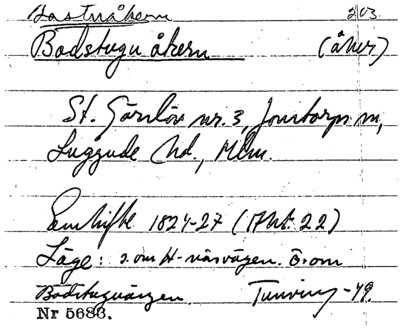 Bastuåkern 203
Badstuguåkern (åker)
St. Görslöv nr. 3, Jonstorps sn,
Luggude hd., Mlm.
Enskifte 1824-27 (Akt. 22)
Läge: s. om H-näsvägen. Ö. om
Badstuguängen. Tunving -49.
Nr 5683.